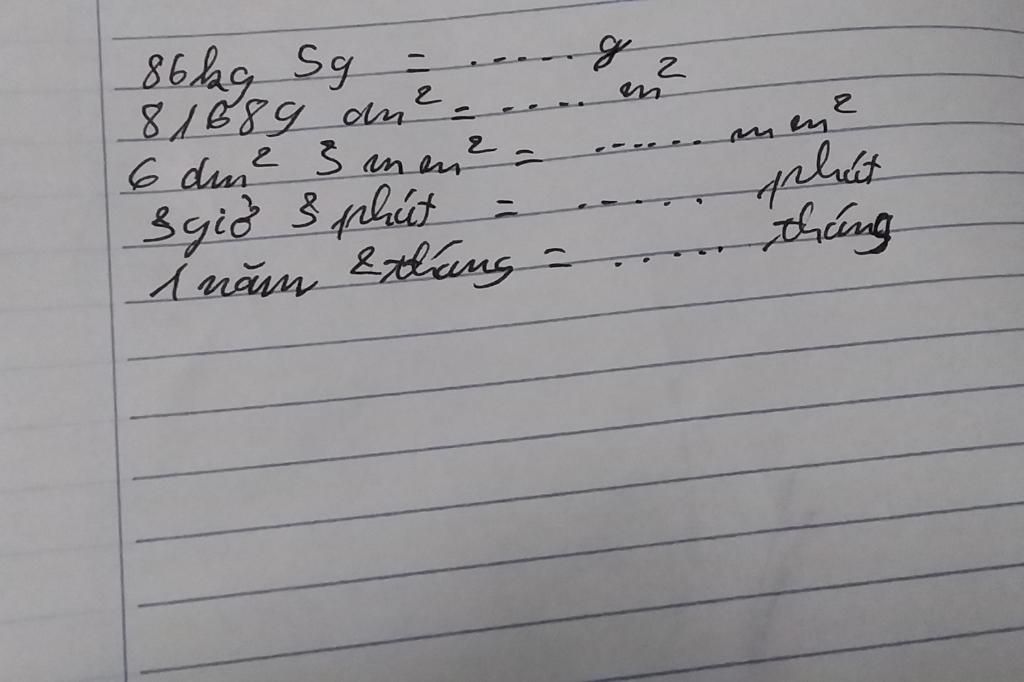 86kg 5g = ...... g
81689 dm² = ..... m²
6 dm² 3 mm² = ....... mm²
3 giờ 3 phút = ...... phút
1 năm 2 tháng = ...... tháng